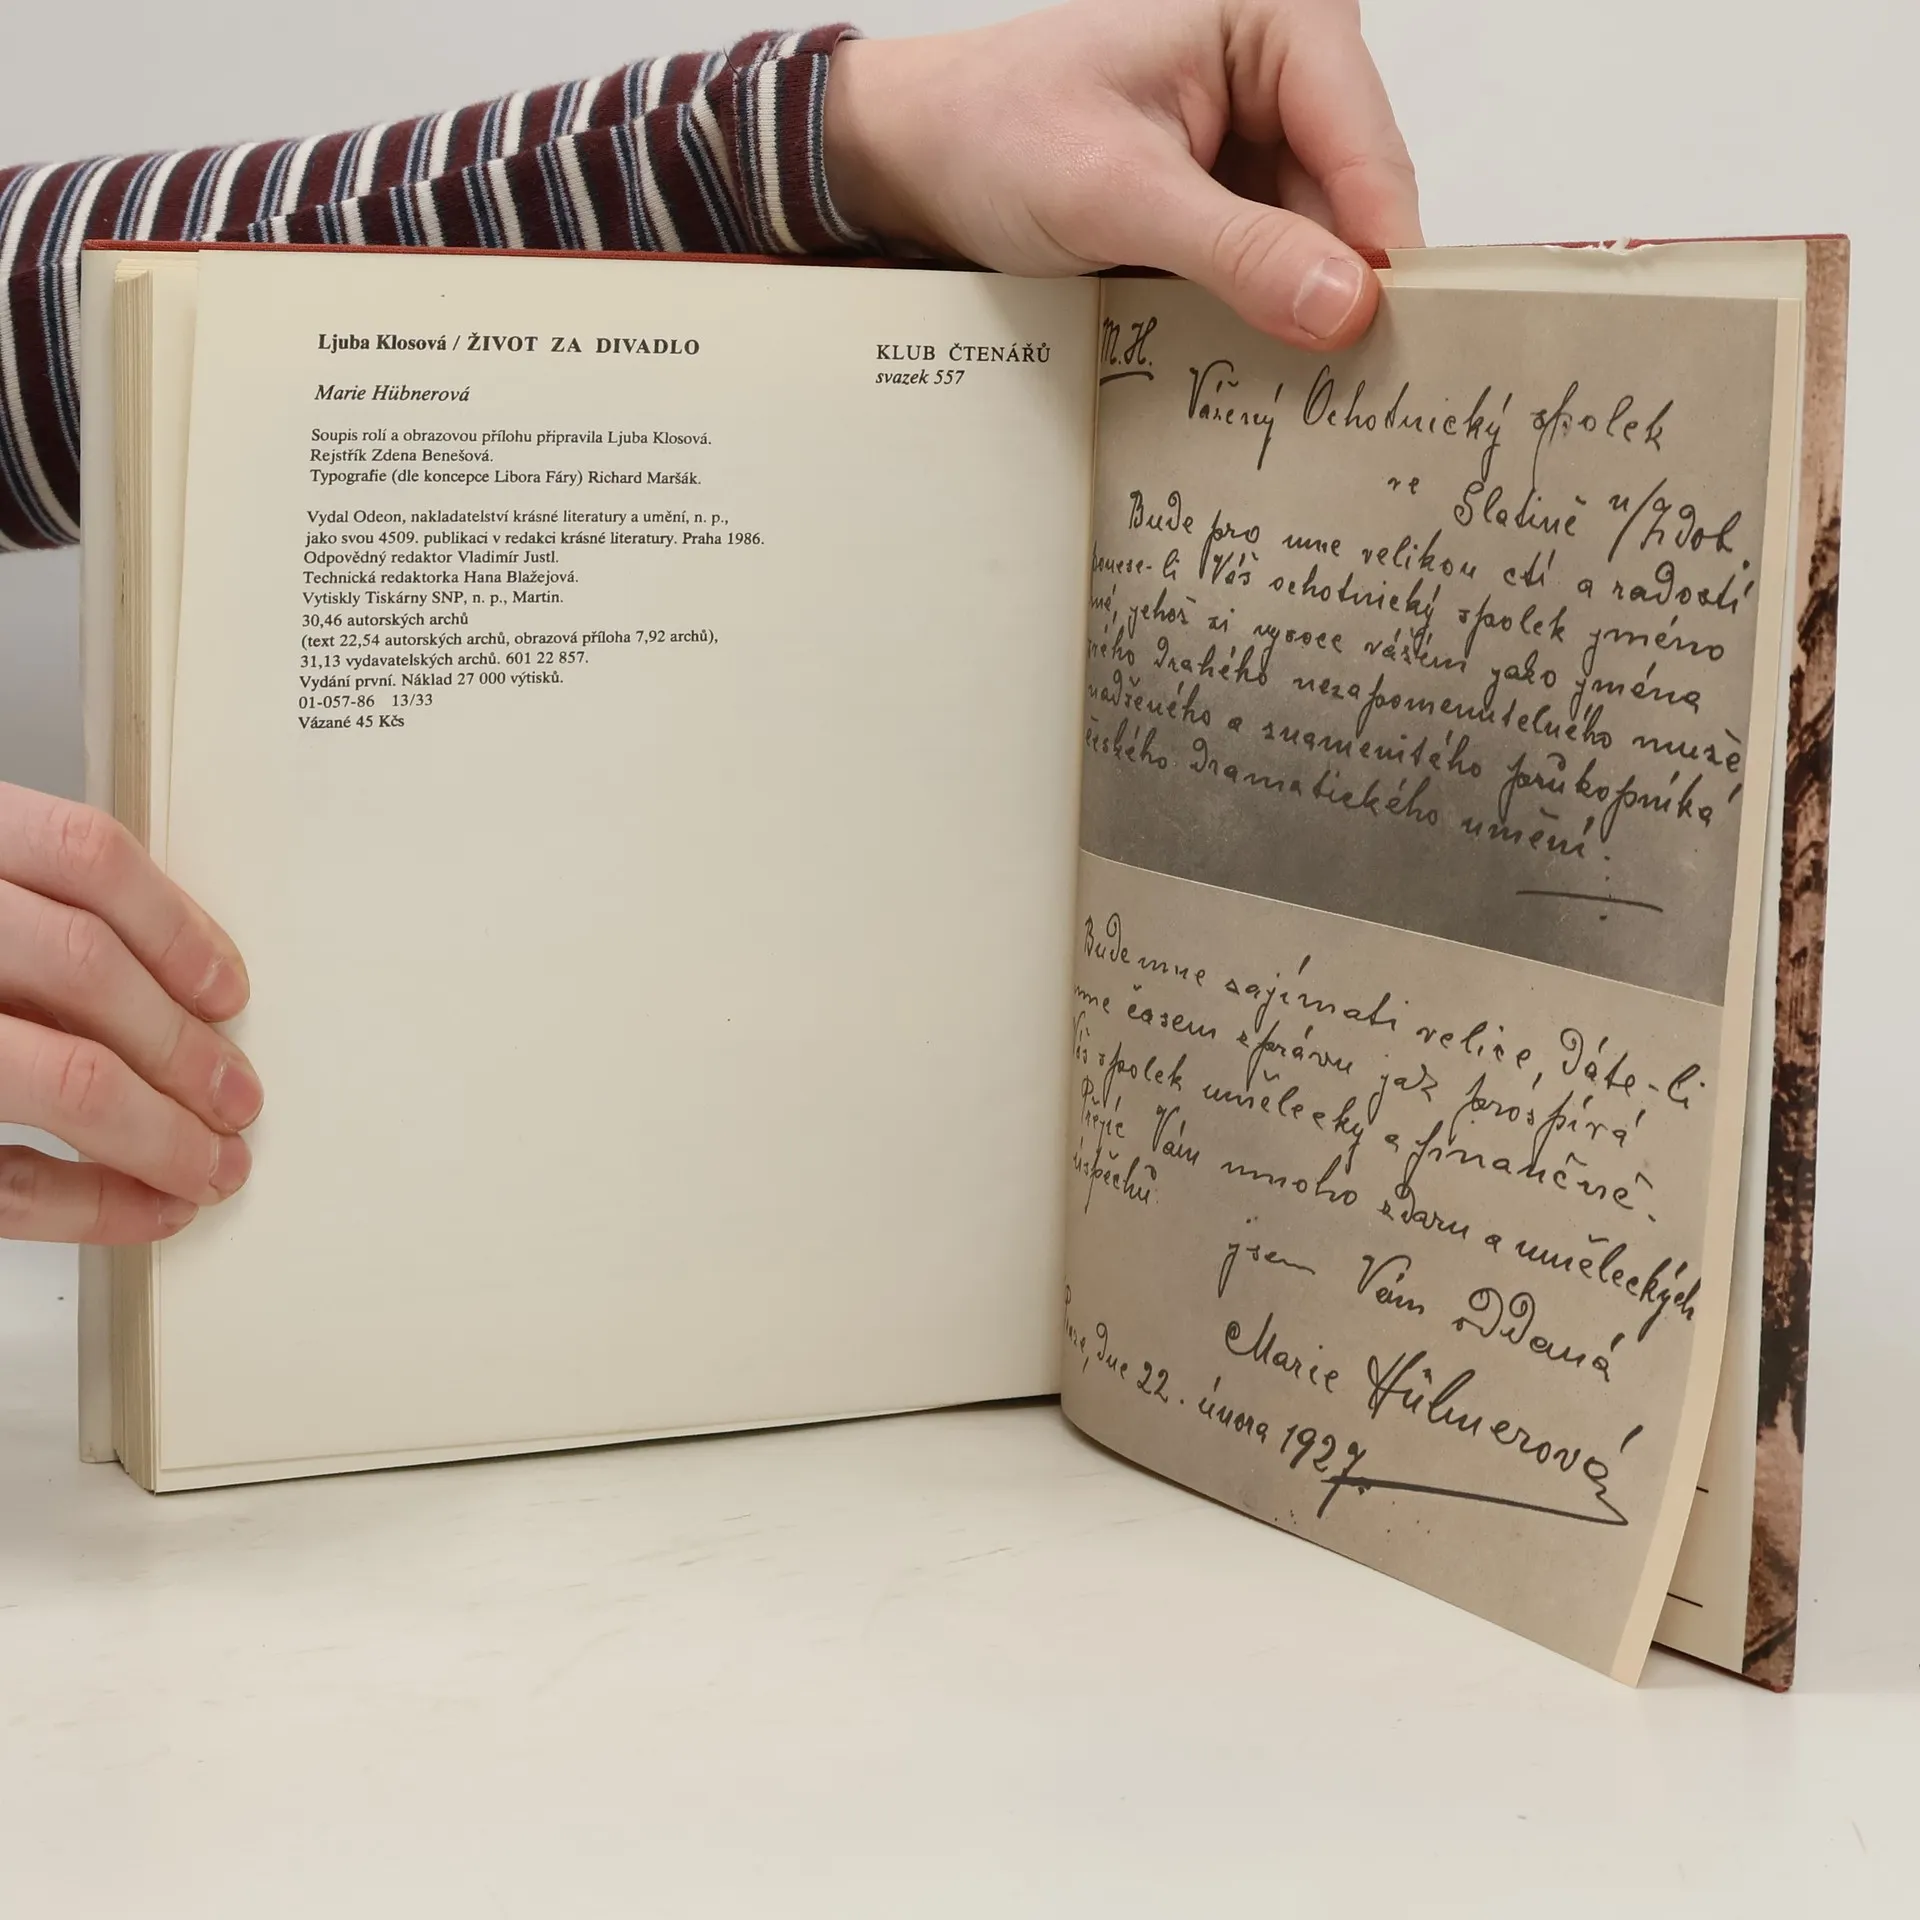 Ljuba Klosová / ŽIVOT ZA DIVADLO
Marie Hübnerová
Soupis rolí a obrazovou přílohu připravila Ljuba Klosová.
Rejstřík Zdena Benešová.
Typografie (dle koncepce Libora Fáry) Richard Maršák.
Vydal Odeon, nakladatelství krásné literatury a umění, n. p.,
jako svou 4509. publikaci v redakci krásné literatury. Praha 1986.
Odpovědný redaktor Vladimír Justl.
Technická redaktorka Hana Blažejová.
Vytiskly Tiskárny SNP, n. p., Martin.
30,46 autorských archů
(text 22,54 autorských archů, obrazová příloha 7,92 archů),
31,13 vydavatelských archů. 601 22 857.
Vydání první. Náklad 27 000 výtisků.
01-057-86 13/33
Vázané 45 Kčs
KLUB ČTENÁŘŮ
svazek 557
M. H.
Vážený Ochotnický spolek
ve Slatině n/Zdob.
Bude pro mne velikou ctí a radostí
ponese-li Váš ochotnický spolek jméno
mé, jehož si vysoce vážím jako jména
drahého nezapomenutelného muže
nadšeného a znamenitého průkopníka
českého dramatického umění.
Bude mne zajímati velice, dáte-li
mne časem zprávu jak prospívá
Váš spolek umělecky a finančně.
Přejíc Vám mnoho zdaru a uměleckých
úspěchů
jsem Vám oddaná
Marie Hübnerová
Praze, dne 22. února 1927.